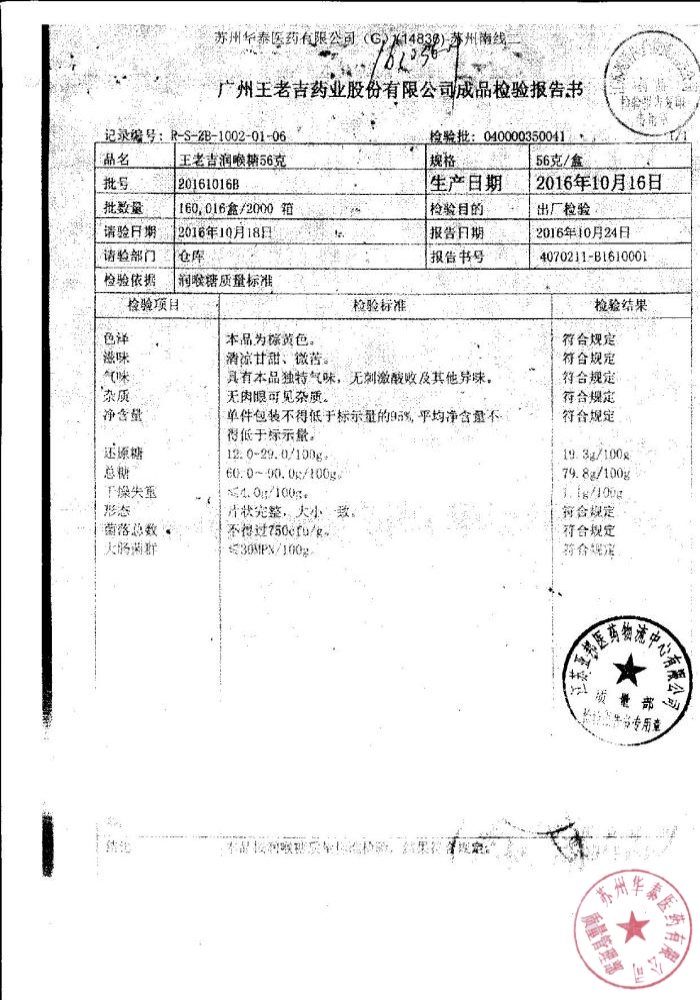 苏州华泰医药有限公司 (G) (14836) 苏州南线二
广州王老吉药业股份有限公司成品检验报告书
记录编号: R-S-ZB-1002-01-06 检验批: 040000350041 1/1
品名 王老吉润喉糖56克 规格 56克/盒
批号 20161016B 生产日期 2016年10月16日
批数量 160,016盒/2000 箱 检验目的 出厂检验
请验日期 2016年10月18日 报告日期 2016年10月24日
请验部门 仓库 报告书号 4070211-B1610001
检验依据 润喉糖质量标准
检验项目 检验标准 检验结果
色泽 本品为棕黄色。 符合规定
滋味 清凉甘甜、微苦。 符合规定
气味 具有本品独特气味，无刺激酸收及其他异味。 符合规定
杂质 无肉眼可见杂质。 符合规定
净含量 单件包装不得低于标示量的95%,平均净含量不 符合规定
得低于标示量。
还原糖 12.0-29.0/100g。 19.3g/100g
总糖 60.0～90.0g/100g。 79.8g/100g
干燥失重 ≤4.0g/100g。 1.1g/100g
形态 片状完整，大小一致。 符合规定
菌落总数 不得过750cfu/g。 符合规定
大肠菌群 ≤30MPN/100g。 符合规定
江苏亚邦医药物流中心有限公司
质量部
检验报告书专用章
结论 本品按润喉糖质量标准检验，结果符合规定。
苏州华泰医药有限公司
质量管理部